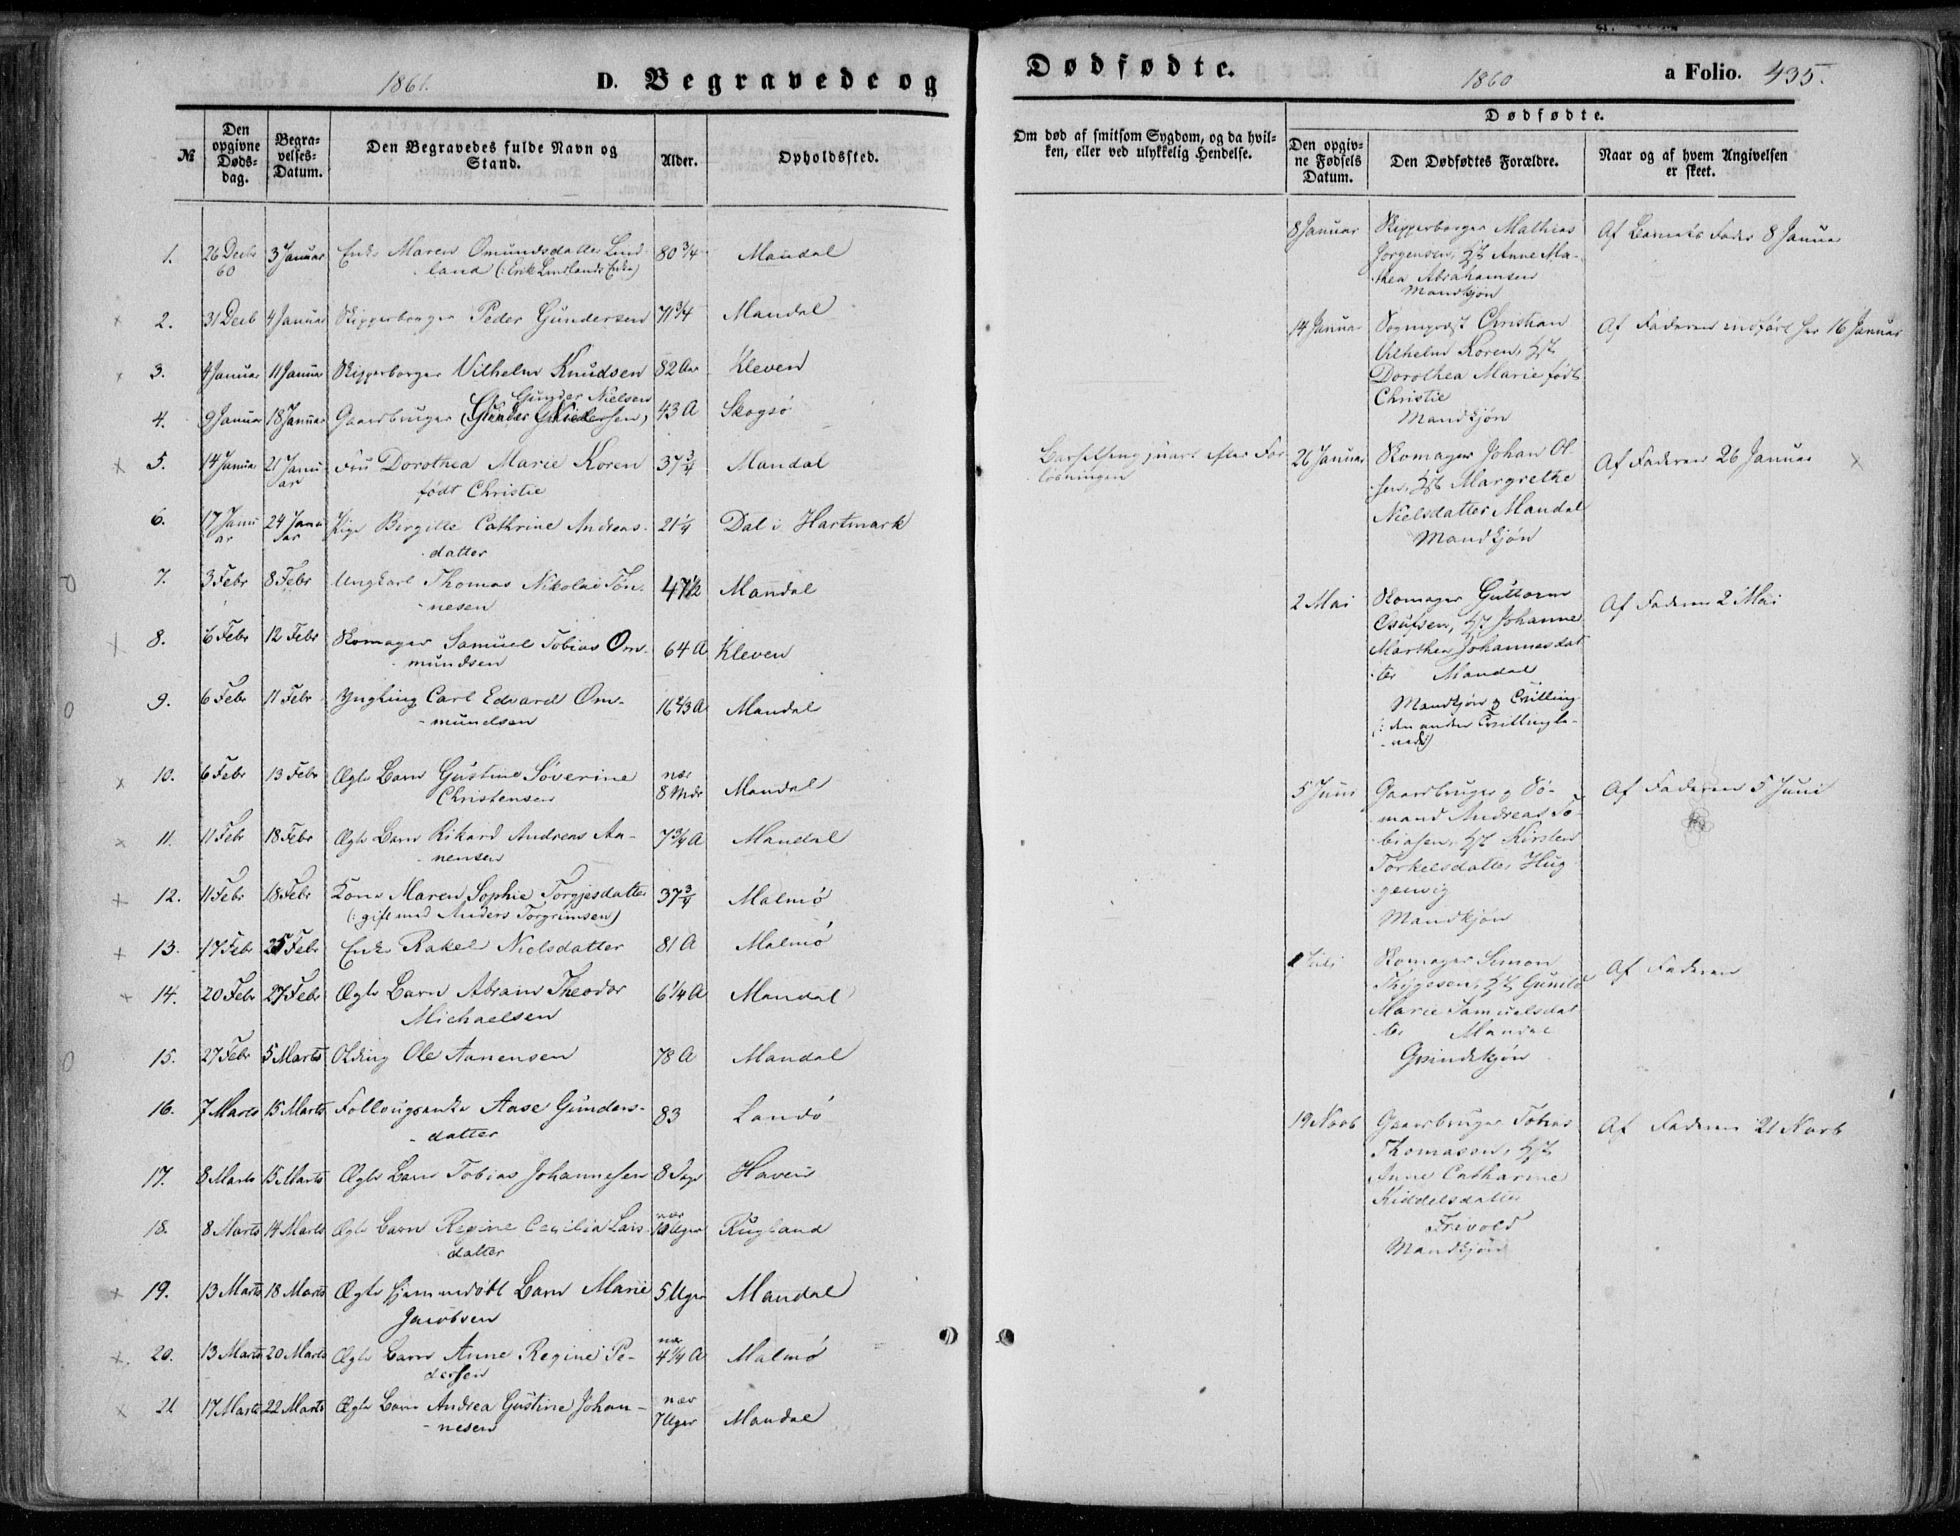 1861.
D. Begravede og
Dødfødte.
1860
a Folio. 435.
№
Den opgivne Døds-dag.
Begra-velses-Datum.
Den Begravedes fulde Navn og Stand.
Alder.
Opholdssted.
Om død af smitsom Sygdom, og da hvil-
ken, eller ved ulykkelig Hendelse.
Dødfødte.
Den opgiv-ne Fødsels Datum.
Den Dødfødtes Forældre.
Naar og af hvem Angivelsen er skeet.
1. 26 Decb 60 3 Januar Enke Maren Omundsdatter Lind- 80 3/4 Mandal
land (: Erik Lindlands Enke)
2. 31 Decb 4 Januar Skipperborger Peder Gundersen 71 3/4 Mandal
3. 4 Januar 11 Januar Skipperborger Vilhelm Knudsen 82 Aar Kleven
Gunder Nielsen
4. 9 Januar 18 Januar Gaardbruger 43 A Skogsø
5. 14 Januar 21 Januar Fru Dorothea Marie Koren 37 3/4 Mandal
født Christie
6. 17 Januar 24 Januar Pige Birgitte Cathrine Andreas- 21 1/4 Dal i Hartmark
datter
7. 3 Febr 8 Febr Ungkarl Thomas Nikolai Tøn- 47 1/2 Mandal
nesen
8. 6 Febr 12 Febr Skomager Samuel Tobias Om- 64 A Kleven
mundsen
9. 6 Febr 11 Febr Yngling Carl Edvard Om- 16 2/3 A Mandal
mundsen
10. 6 Febr 13 Febr Ægte Barn Gustine Søverine nær 8 Mdr Mandal
Christensen
11. 11 Febr 18 Febr Ægte Barn Rikard Andreas Aa- 7 3/4 A Mandal
nensen
12. 11 Febr 18 Febr Kone Maren Sophie Torgjesdatter 37 3/4 Malmø
(: gift med Anders Torgrimsen)
13. 17 Febr 25 Febr Enke Rakel Nielsdatter 81 A Malmø
14. 20 Febr 27 Febr Ægte Barn Abraim Theodor 6 1/4 A Mandal
Michaelsen
15. 27 Febr 5 Marts Olding Ole Aanensen 78 A Mandal
16. 7 Marts 15 Marts Føllougsenke Aase Gunders- 83 Landø
datter
17. 8 Marts 15 Marts Ægte Barn Tobias Johannesen 8 Dage Haven
18. 8 Marts 14 Marts Ægte Barn Regine Cecilia Lars- nær 10 Uger Rugland
datter
19. 13 Marts 18 Marts Ægte hjemmedøbt Barn Marie 5 Uger Mandal
Jacobsen
20. 13 Marts 20 Marts Ægte Barn Anne Regine Pe- næ 4 1/4 A Malmø
dersen
21 17 Marts 22 Marts Ægte Barn Andrea Gustine Johan- nær 7 Uger Mandal
nesen
8 Januar Skipperborger Mathias Af Barnets Fader 8 Januar
Jørgensen, Hst Anne Ma-
thea Abrahamsen
Mandkjøn
14 Januar Sogneprest Christian Af Faderen indført her 16 Januar
Vilhelm Koren, Hst
Dorothea Marie født
Christie
Mandkjøn
Barselseng snart efter For-
løsningen
26 Januar Skomager Johan Ol- Af Faderen 26 Januar
sen, Hst Margrethe
Nielsdatter Mandal
Mandkjøn
2 Mai Skomager Guttorm Af Faderen 2 Mai
Hst Johanne
Marthea Johannesdat
ter Mandal
Mandkjøn og Tvilling
(: den anden Tvilling le-
vede)
5 Juni Gaardbruger og Sø- Af Faderen 5 Juni
mand Andreas To-
biasen, Hst Kirsten
Torkelsdatter Hug
genvig
Mandkjøn
1 Juli Skomager Simon Af Faderen
Trygesen, Hst Gunild
Marie Samuelsdat
ter Mandal
Qvindekjøn
19 Novb Gaardbruger Tobias Af Faderen 21 Novb
Thomassen, Hst
Anne Catharine
Kiddelsdatter
Frivold
Mandkjøn